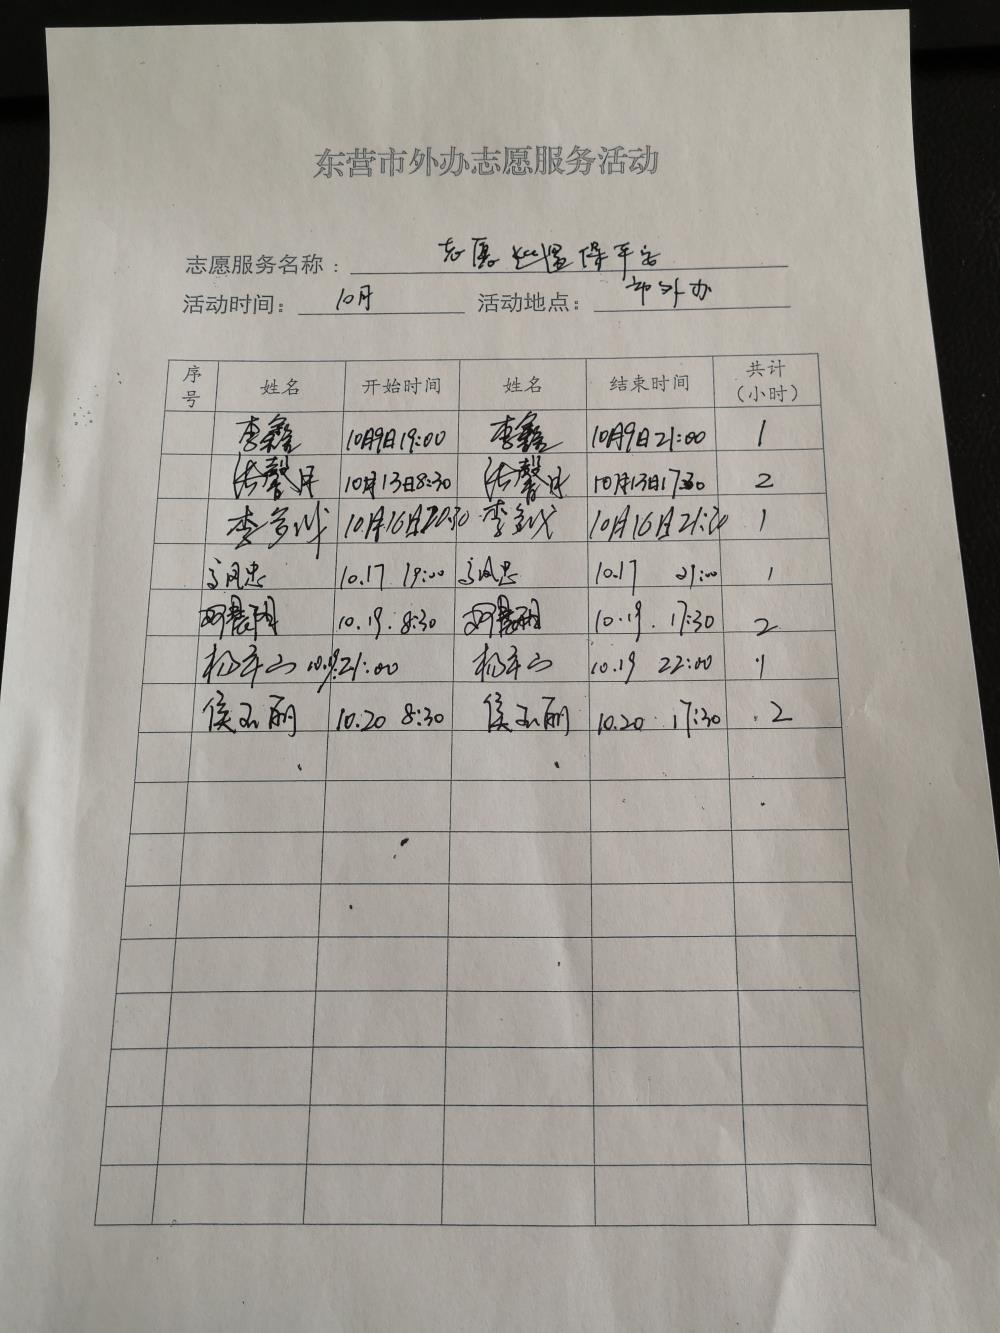 东营市外办志愿服务活动
志愿服务名称：志愿 保平安
活动时间：10月 活动地点：市外办
序号 姓名 开始时间 姓名 结束时间 共计（小时）
李鑫 10月9日19:00 李鑫 10月9日21:00 1
馨月 10月13日8:30 馨月 10月13日17:30 2
李 10月16日20:30 李 10月16日21:30 1
高风忠 10.17 19:00 高风忠 10.17 21:00 1
10.19. 8:30 10.19. 17:30 2
杨 10.19. 21:00 杨 10.19 22:00 1
侯玉丽 10.20 8:30 侯玉丽 10.20 17:30 2